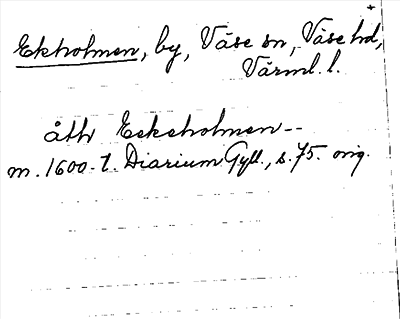 Ekholmen, by, Väse sn, Väse hd,
Värml. l.
åth Eckeholmen--
m. 1600-t. Diarium Gyll., s. 75. orig.